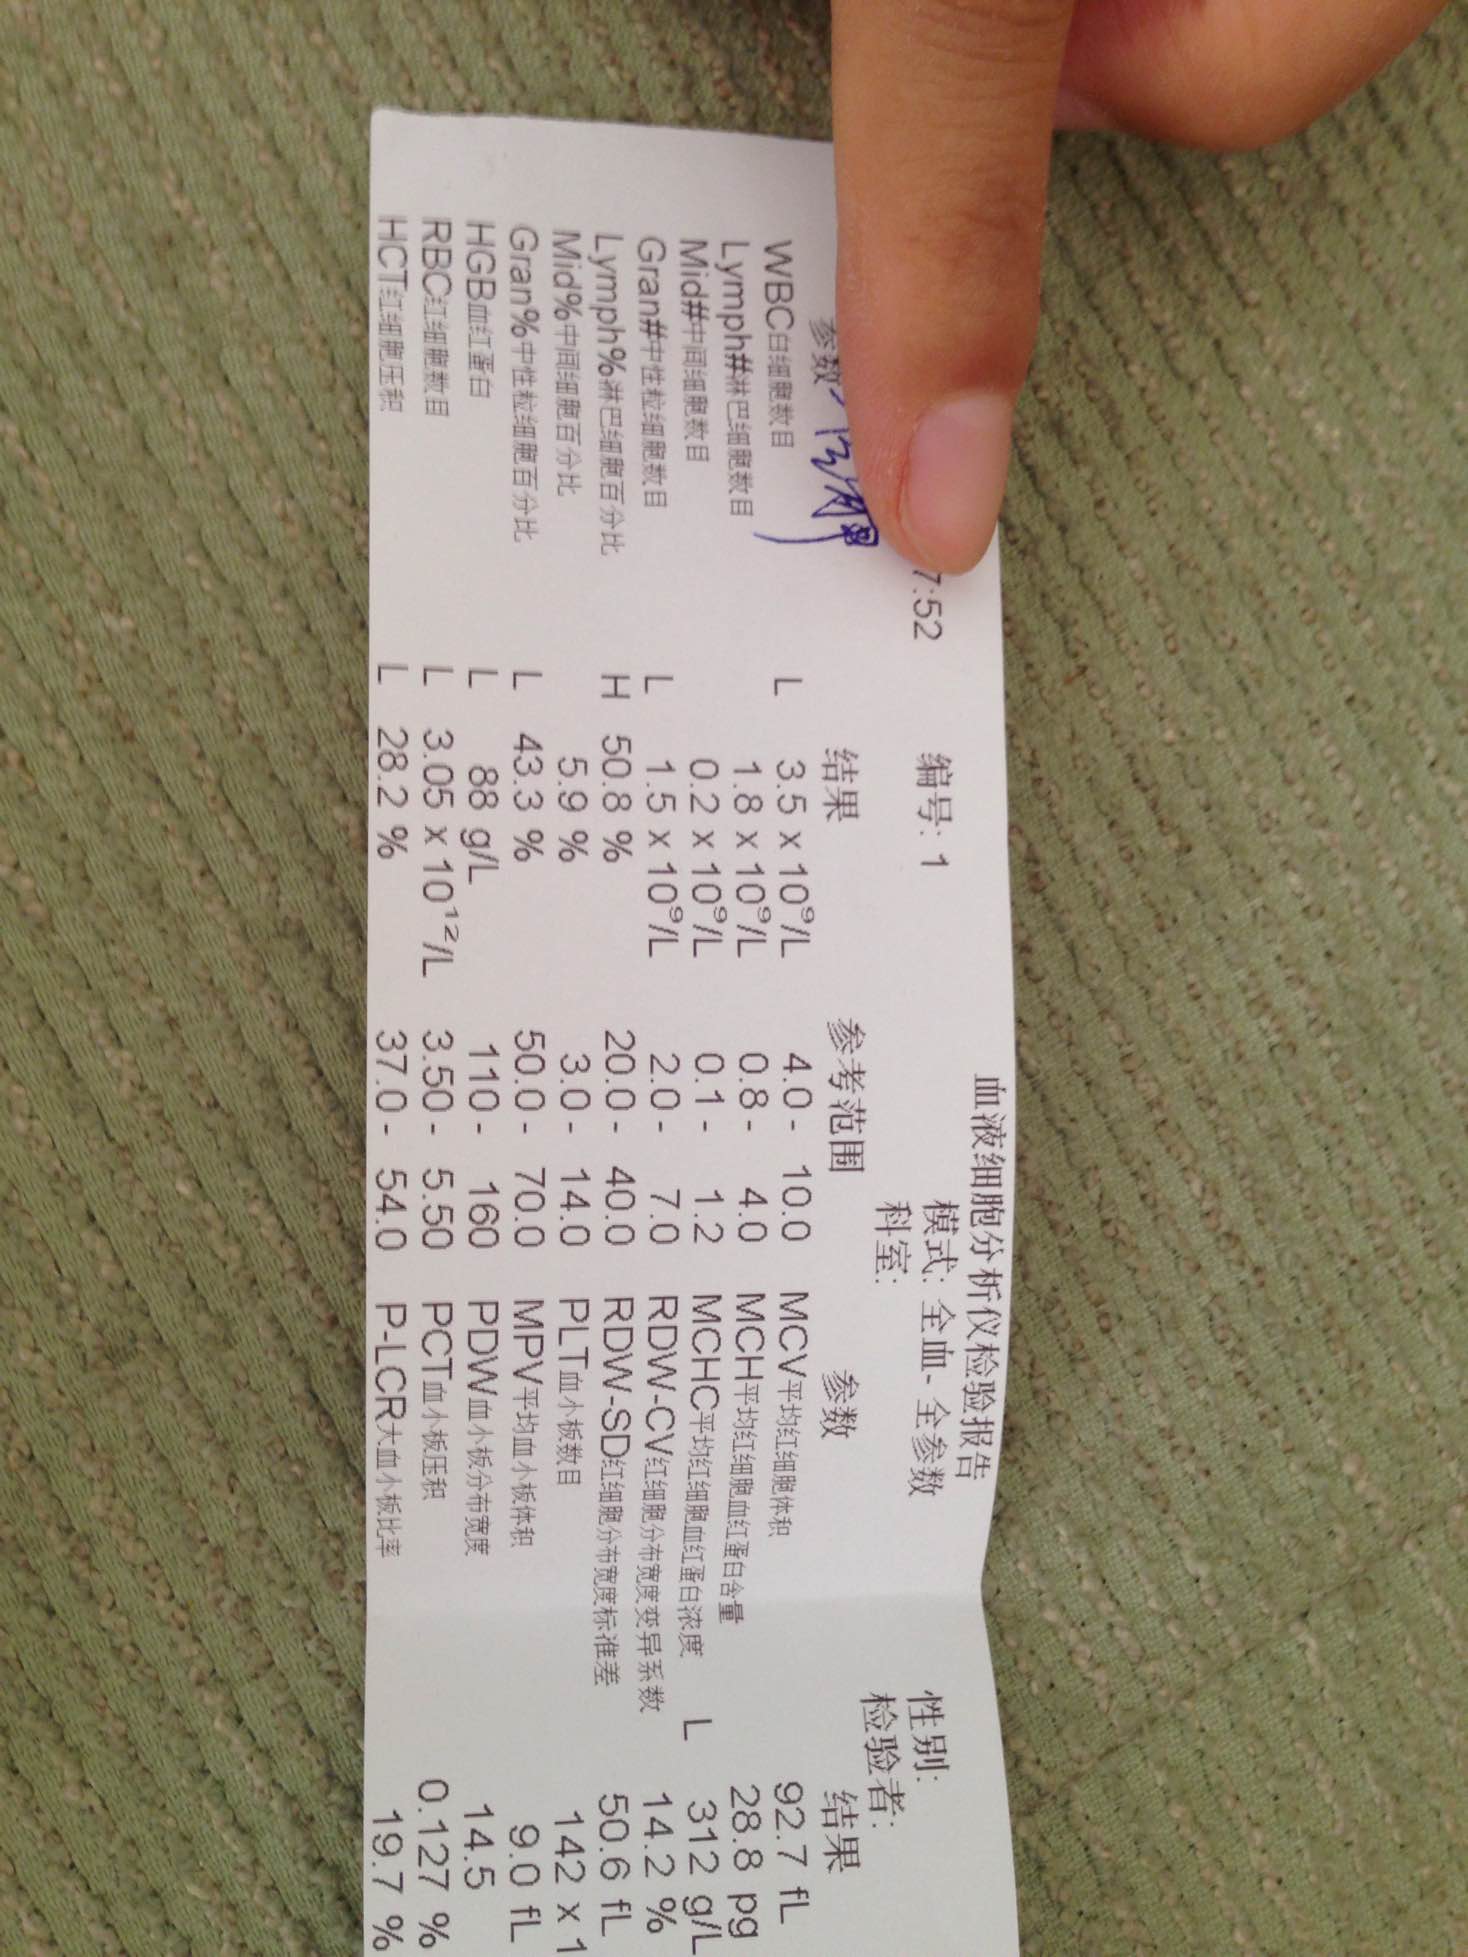 血液细胞分析仪检验报告
7:52 编号: 1 模式: 全血- 全参数 性别:
科室: 检验者:
参数 结果 参考范围 参数 结果
WBC白细胞数目 L 3.5 x 10⁹/L 4.0 - 10.0 MCV平均红细胞体积 92.7 fL
Lymph#淋巴细胞数目 1.8 x 10⁹/L 0.8 - 4.0 MCH平均红细胞血红蛋白含量 28.8 pg
Mid#中间细胞数目 0.2 x 10⁹/L 0.1 - 1.2 MCHC平均红细胞血红蛋白浓度 L 312 g/L
Gran#中性粒细胞数目 L 1.5 x 10⁹/L 2.0 - 7.0 RDW-CV红细胞分布宽度变异系数 14.2 %
Lymph%淋巴细胞百分比 H 50.8 % 20.0 - 40.0 RDW-SD红细胞分布宽度标准差 50.6 fL
Mid%中间细胞百分比 5.9 % 3.0 - 14.0 PLT血小板数目 142 x 1
Gran%中性粒细胞百分比 L 43.3 % 50.0 - 70.0 MPV平均血小板体积 9.0 fL
HGB血红蛋白 L 88 g/L 110 - 160 PDW血小板分布宽度 14.5
RBC红细胞数目 L 3.05 x 10¹²/L 3.50 - 5.50 PCT血小板压积 0.127 %
HCT红细胞压积 L 28.2 % 37.0 - 54.0 P-LCR大血小板比率 19.7 %